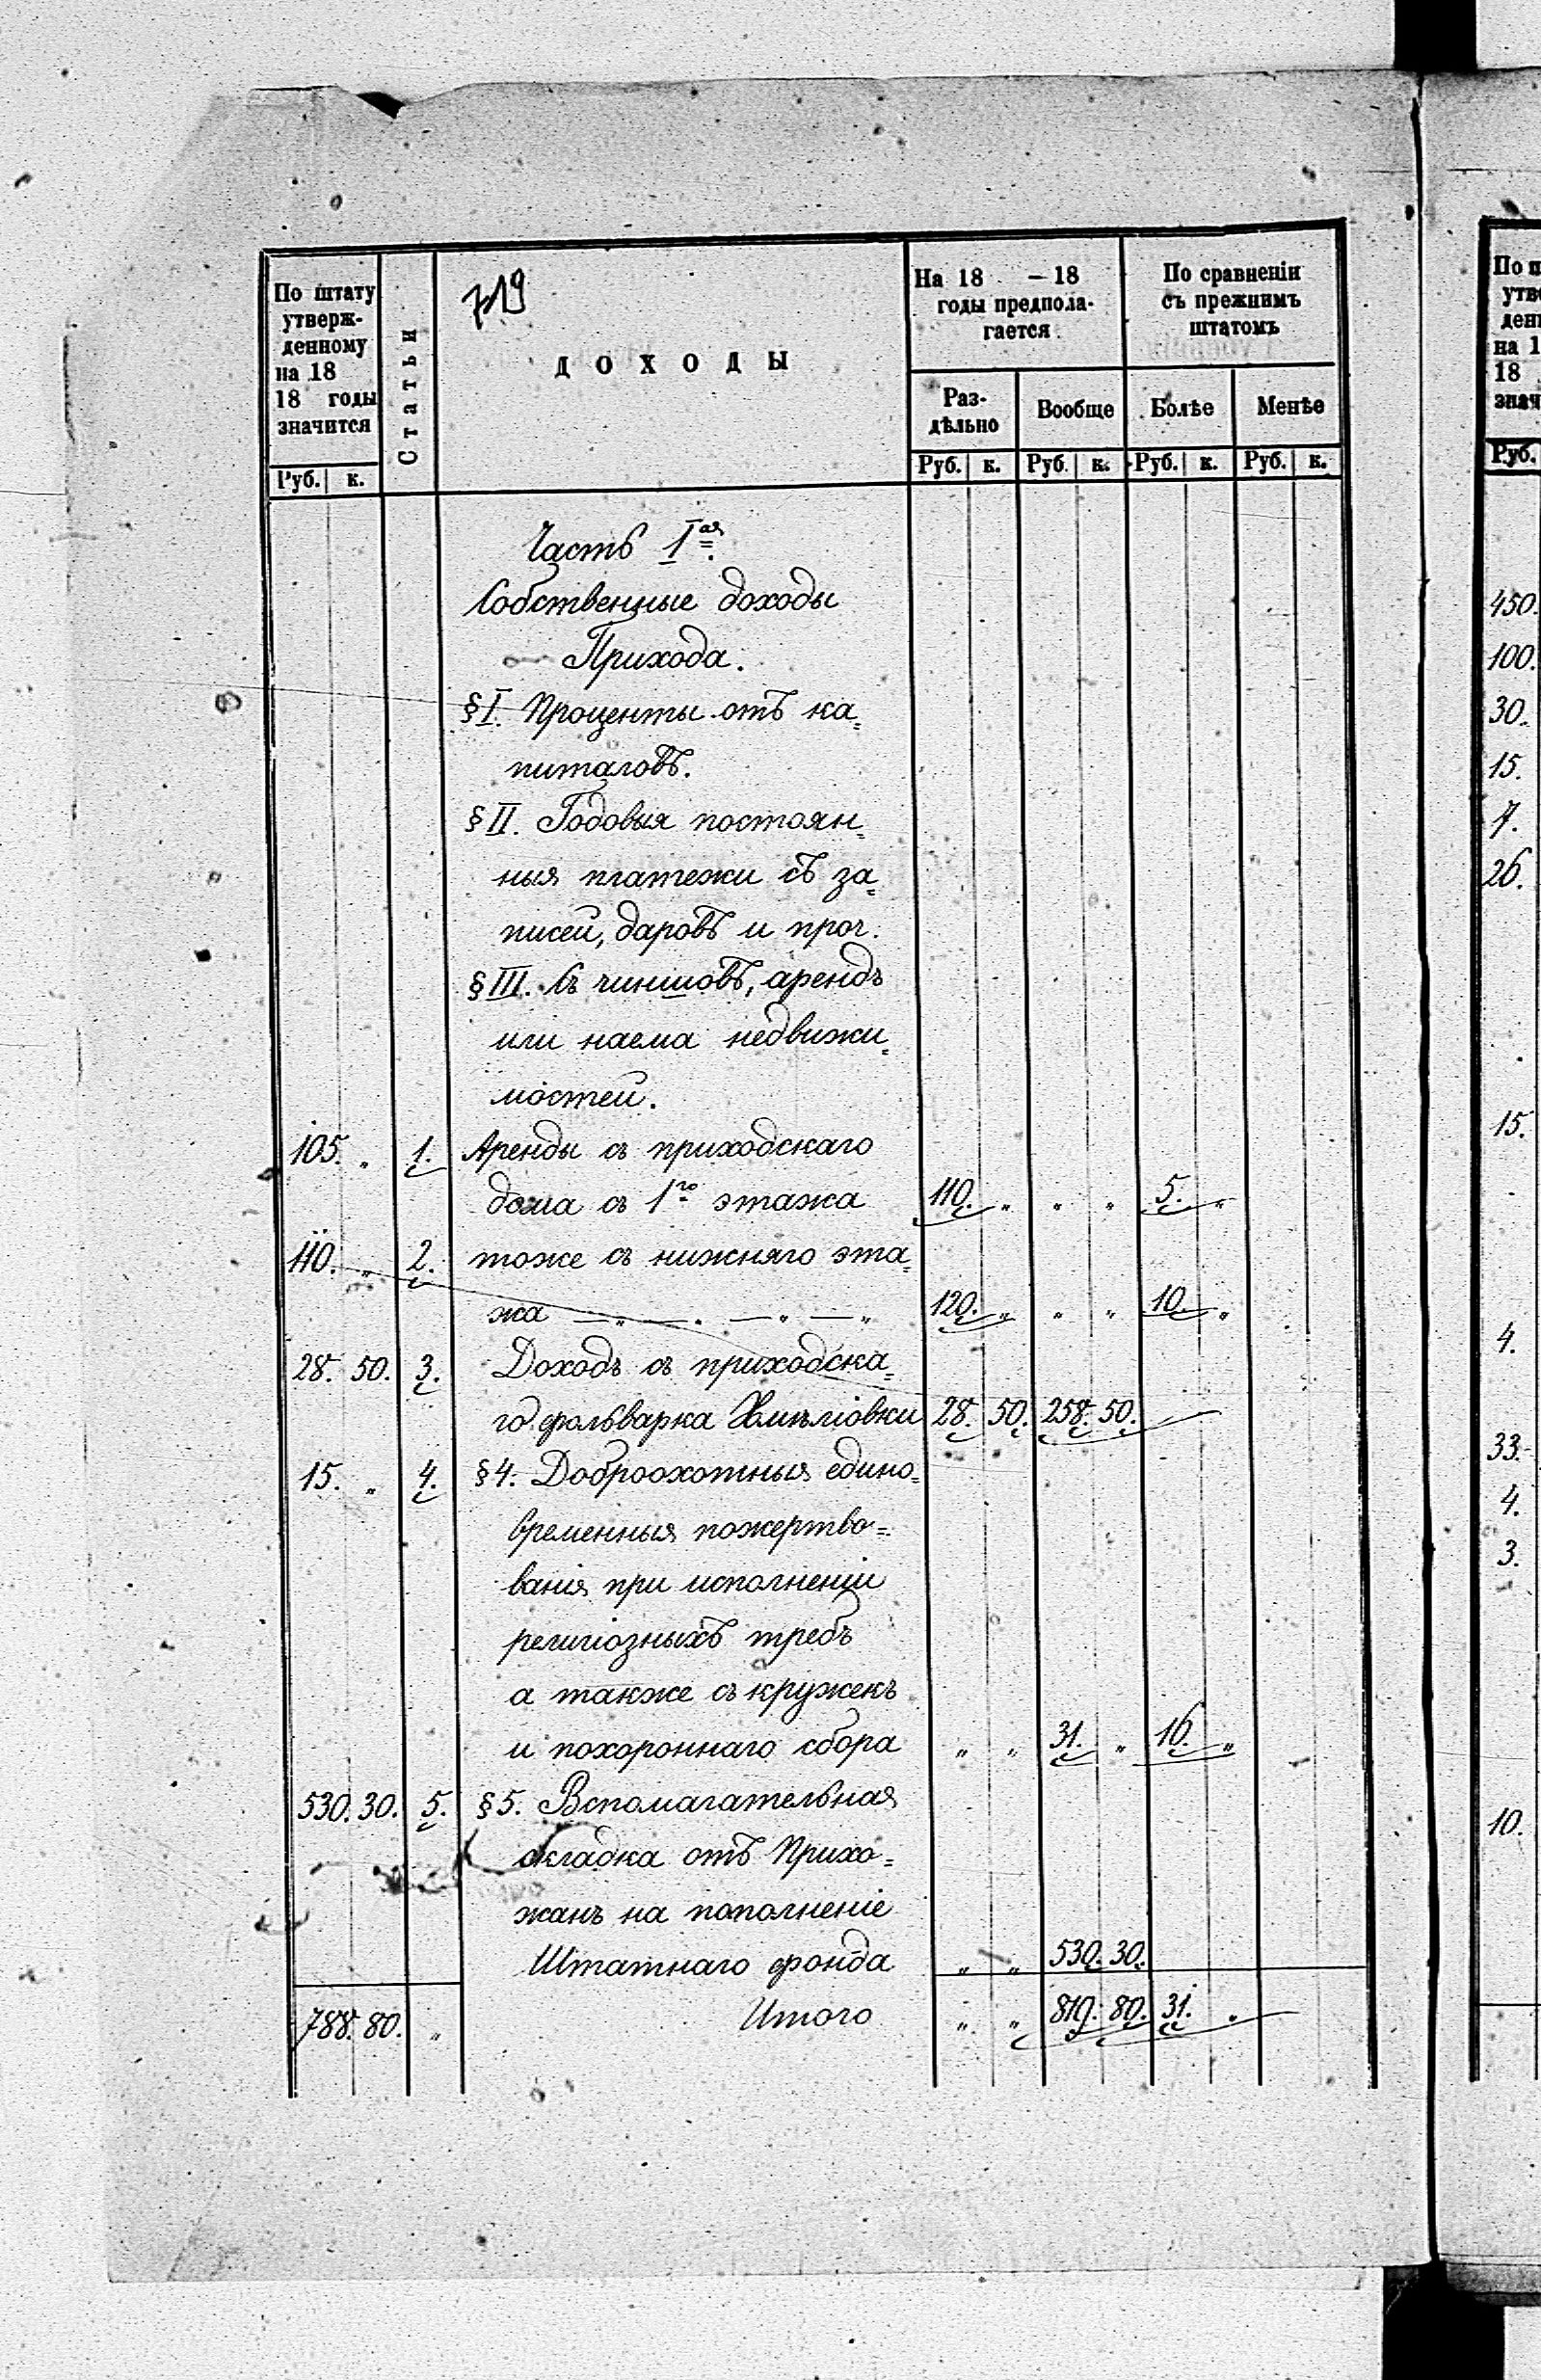 719
По штату
утверж-
денному
на 18
18 годы
значится
Руб. к.
Статьи
ДОХОДЫ
На 18 – 18
годы предпола-
гается
Раз-
дѣльно
Вообще
По сравненіи
съ прежнимъ
штатомъ
Болѣе
Менѣе
Руб. к. Руб. к. Руб. к. Руб. к.
Часть I ая
Собственные доходы
Прихода.
§ I. Проценты отъ ка=
питаловъ.
§ II. Годовыя постоян=
ныя платежи съ за=
писей, даровъ и проч.
§ III. Съ чиншовъ, арендъ
или наема недвижи=
мостей.
105. „ 1. Аренды съ приходскаго
дома съ 1го этажа 110. „ „ „ 5. „
110. „ 2. тоже съ нижняго эта=
жа — „ — . — „ — „ 120. „ „ „ 10. „
28. 50. 3. Доходъ съ приходска=
го фольварка 28. 50. 258. 50.
15. „ 4. § 4. Доброохотныя едино=
временныя пожертво=
ванія при исполненіи
религіозныхъ требъ
а также съ кружекъ
и похороннаго сбора „ „ 31. „ 16. „
530. 30. 5. § 5. Вспомагательная
складка отъ Прихо=
жанъ на пополненіе
Штатнаго фонда „ „ 530. 30.
788. 80. „ Итого „ „ 819. 80. 31. „
Руб.
450.
100.
30.
15.
7.
26.
15.
4.
33.
4.
3.
10.